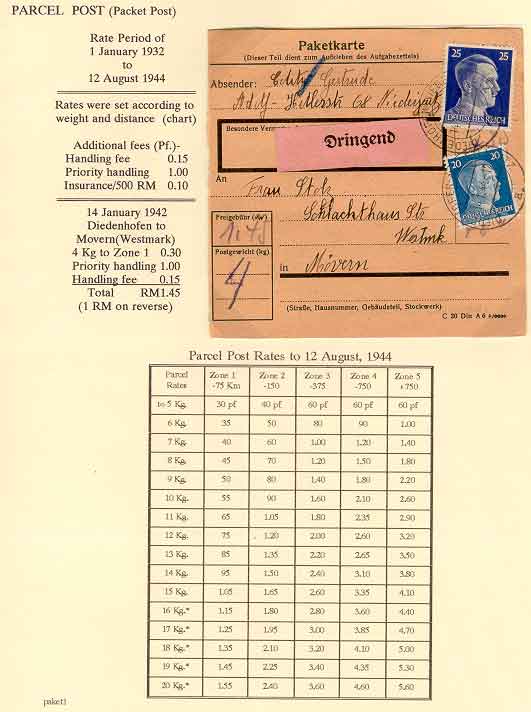 PARCEL POST (Packet Post)
Rate Period of
1 January 1932
to
12 August 1944
Rates were set according to
weight and distance (chart)
Additional fees (Pf.)-
Handling fee 0.15
Priority handling 1.00
Insurance/500 RM 0.10
14 January 1942
Diedenhofen to
Movern(Westmark)
4 Kg to Zone 1 0.30
Priority handling 1.00
Handling fee 0.15
Total RM1.45
(1 RM on reverse)
Paketkarte
(Dieser Teil dient zum Aufkleben des Aufgabezettels)
Absender: Gertrude
68
Besondere
Dringend
An
Frau Stolz
Schlachthaus Str
Westmk
Freigebühr
Postgewicht (kg)
4
in Mövern
(Straße, Hausnummer, Gebäudeteil, Stockwerk)
C 20 Din A 6
25 25
DEUTSCHES REICH
20 20
Parcel Post Rates to 12 August, 1944
Parcel Rates Zone 1 -75 Km Zone 2 -150 Zone 3 -375 Zone 4 -750 Zone 5 +750
to 5 Kg. 30 pf 40 pf 60 pf 60 pf 60 pf
6 Kg. 35 50 80 90 1.00
7 Kg. 40 60 1.00 1.20 1.40
8 Kg. 45 70 1.20 1.50 1.80
9 Kg. 50 80 1.40 1.80 2.20
10 Kg. 55 90 1.60 2.10 2.60
11 Kg. 65 1.05 1.80 2.35 2.90
12 Kg. 75 1.20 2.00 2.60 3.20
13 Kg. 85 1.35 2.20 2.65 3.50
14 Kg. 95 1.50 2.40 3.10 3.80
15 Kg. 1.05 1.65 2.60 3.35 4.10
16 Kg.* 1.15 1.80 2.80 3.60 4.40
17 Kg.* 1.25 1.95 3.00 3.85 4.70
18 Kg.* 1.35 2.10 3.20 4.10 5.00
19 Kg.* 1.45 2.25 3.40 4.35 5.30
20 Kg.* 1.55 2.40 3.60 4.60 5.60
paket1